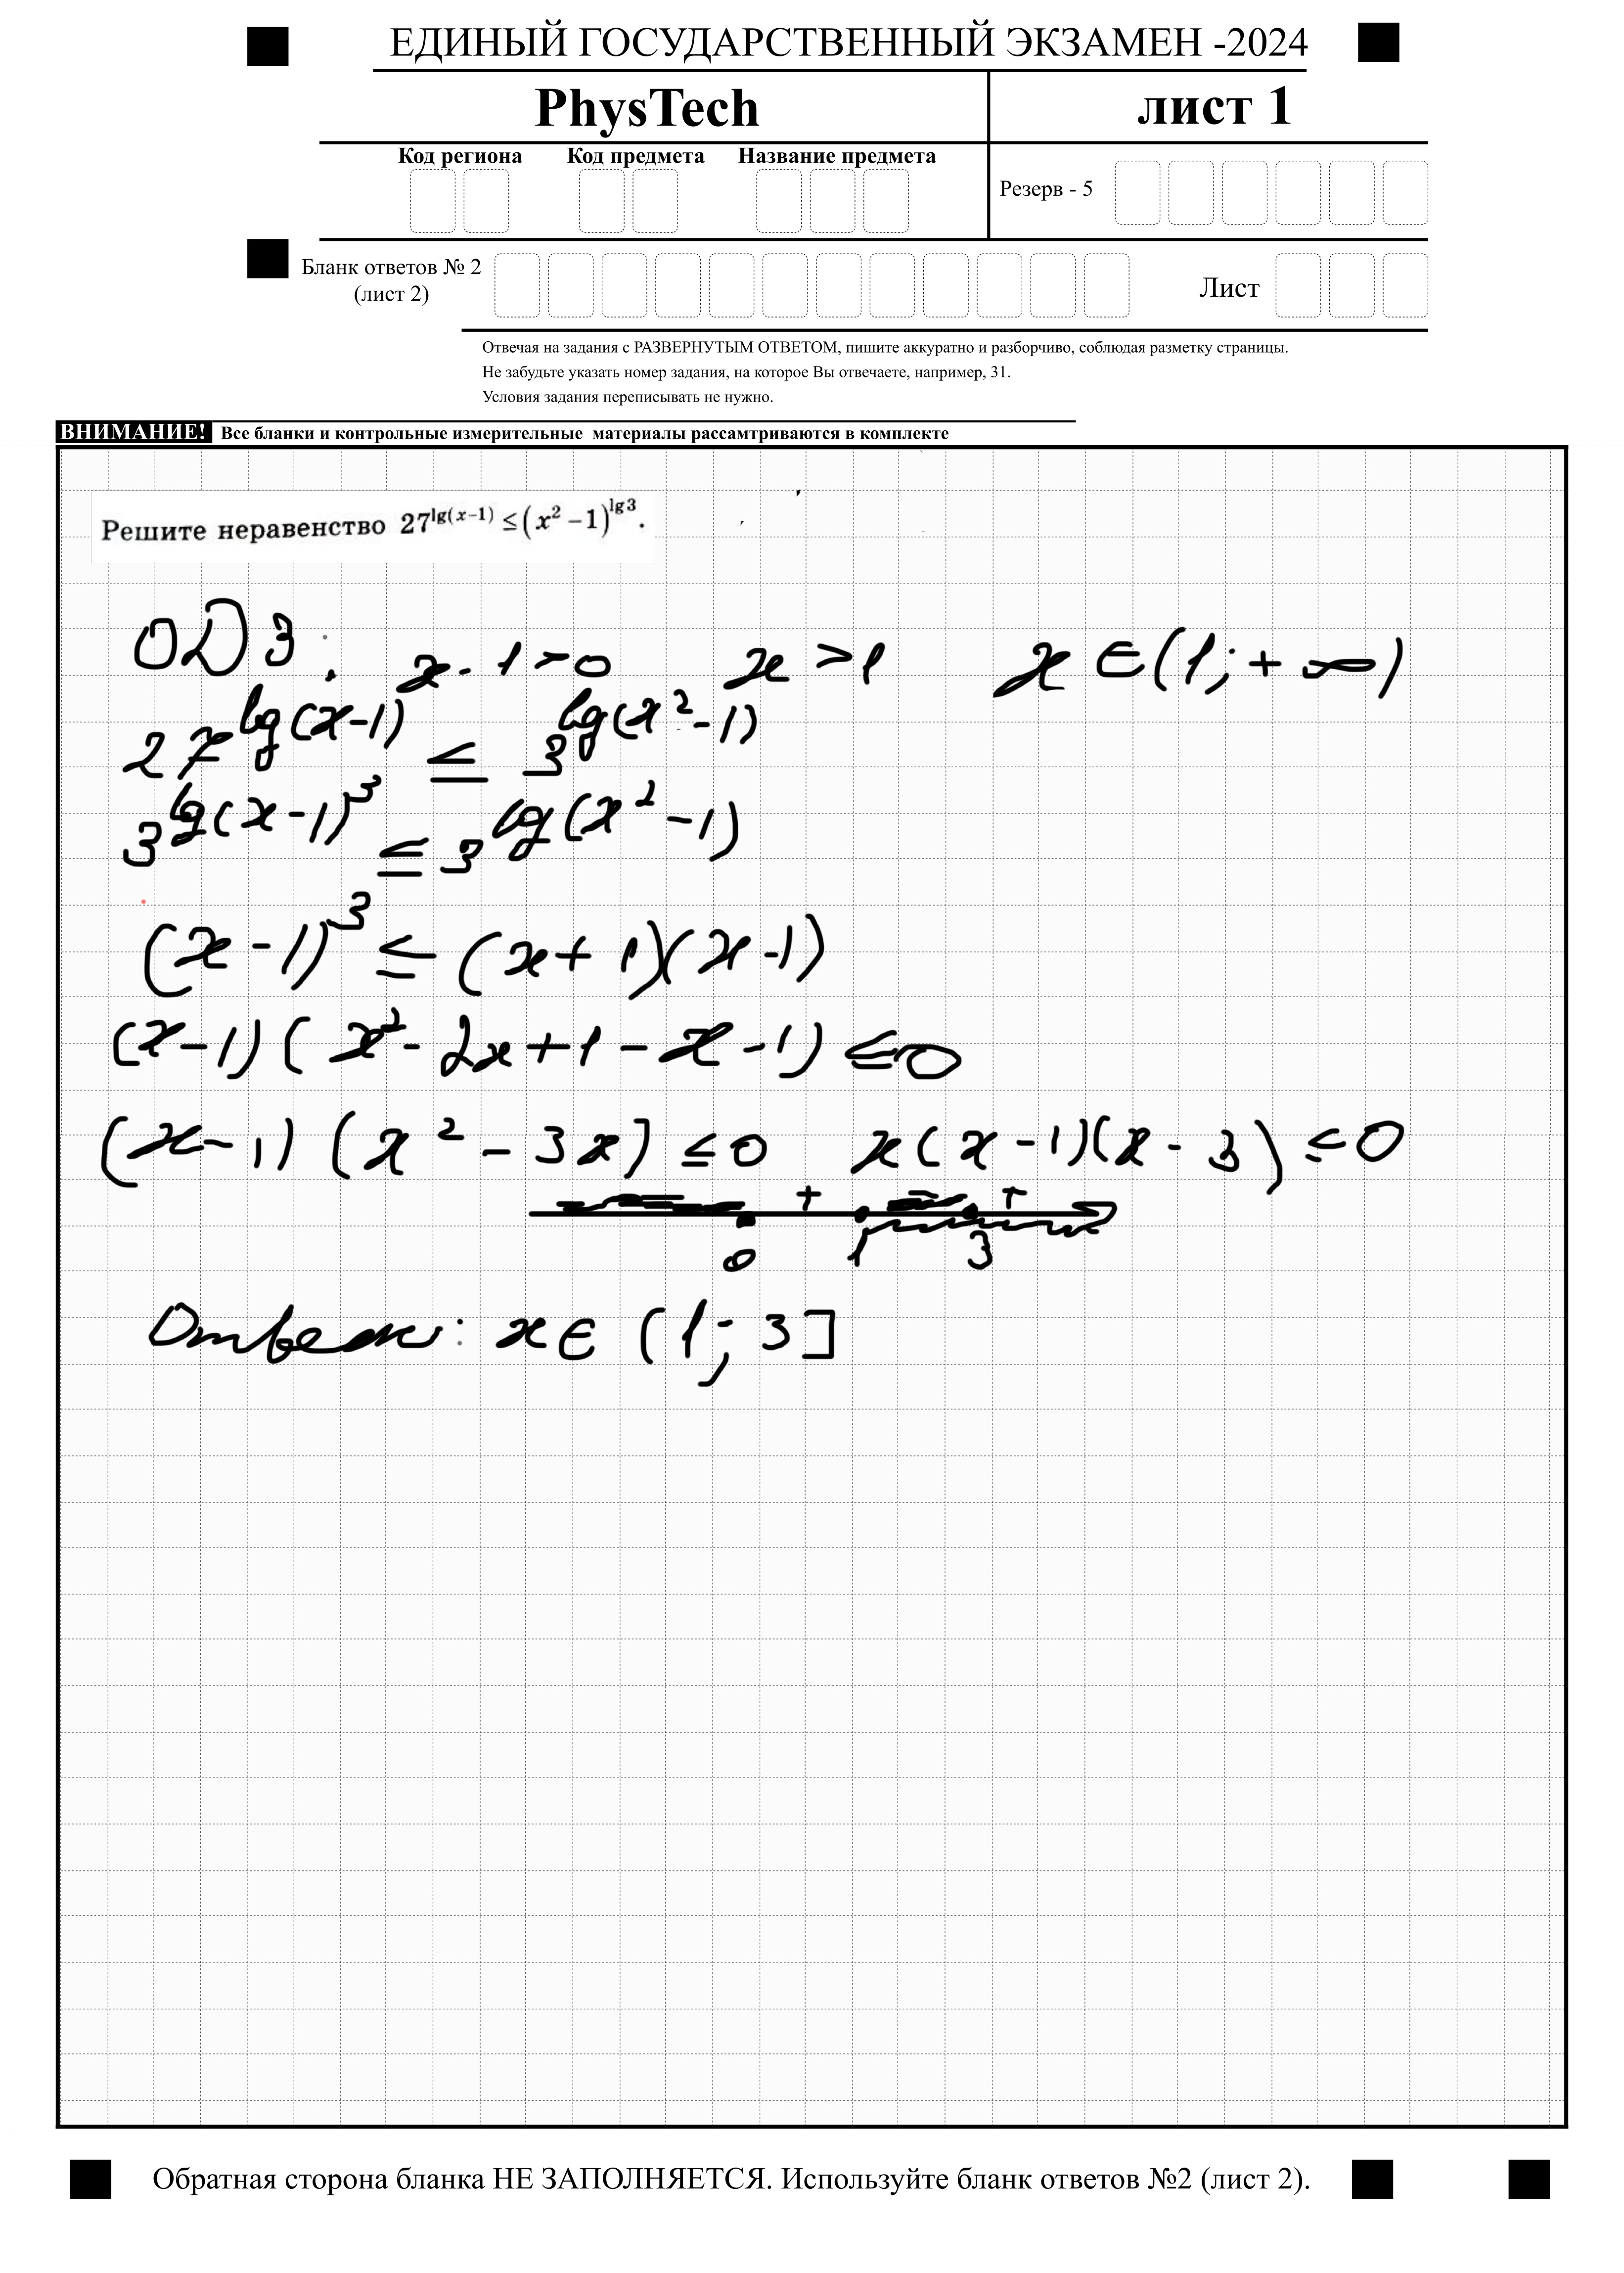 ЕДИНЫЙ ГОСУДАРСТВЕННЫЙ ЭКЗАМЕН -2024
PhysTech
лист 1
Код региона Код предмета Название предмета
Резерв - 5
Бланк ответов № 2
(лист 2)
Лист
Отвечая на задания с РАЗВЕРНУТЫМ ОТВЕТОМ, пишите аккуратно и разборчиво, соблюдая разметку страницы.
Не забудьте указать номер задания, на которое Вы отвечаете, например, 31.
Условия задания переписывать не нужно.
ВНИМАНИЕ! Все бланки и контрольные измерительные материалы рассамтриваются в комплекте
Решите неравенство 27^{lg(x−1)} ≤ (x² −1)^{lg3}.
ОДЗ: x-1>0 x>1 x∈(1;+∞)
27^{lg(x-1)} ≤ 3^{lg(x²-1)}
3^{lg(x-1)³} ≤ 3^{lg(x²-1)}
(x-1)³ ≤ (x+1)(x-1)
(x-1)(x²-2x+1-x-1) ≤0
(x-1)(x²-3x) ≤0 x(x-1)(x-3) ≤0
− + − +
0 1 3
Ответ: x∈(1;3]
Обратная сторона бланка НЕ ЗАПОЛНЯЕТСЯ. Используйте бланк ответов №2 (лист 2).